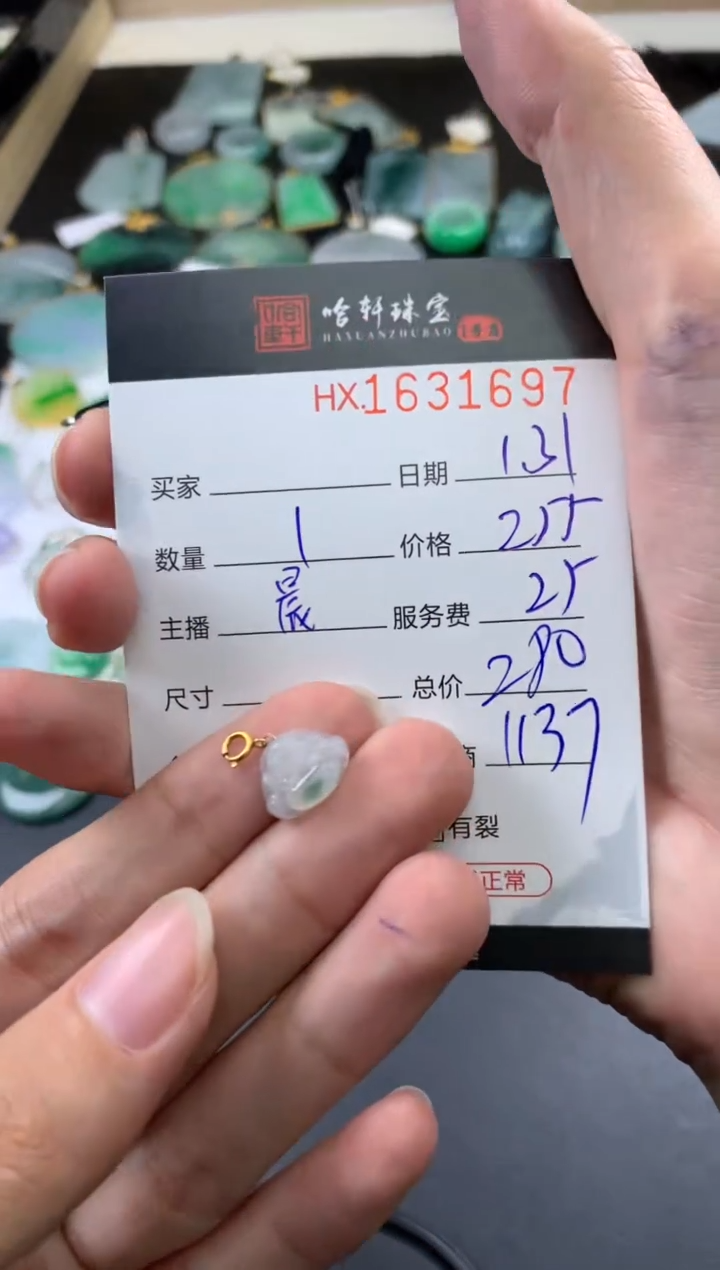 哈轩珠宝
HAXUANZHUBAO
HX.1631697
买家 日期 131
数量 1 价格 255
主播 晨 服务费 25
尺寸 总价 280
商 1137
有裂
正常